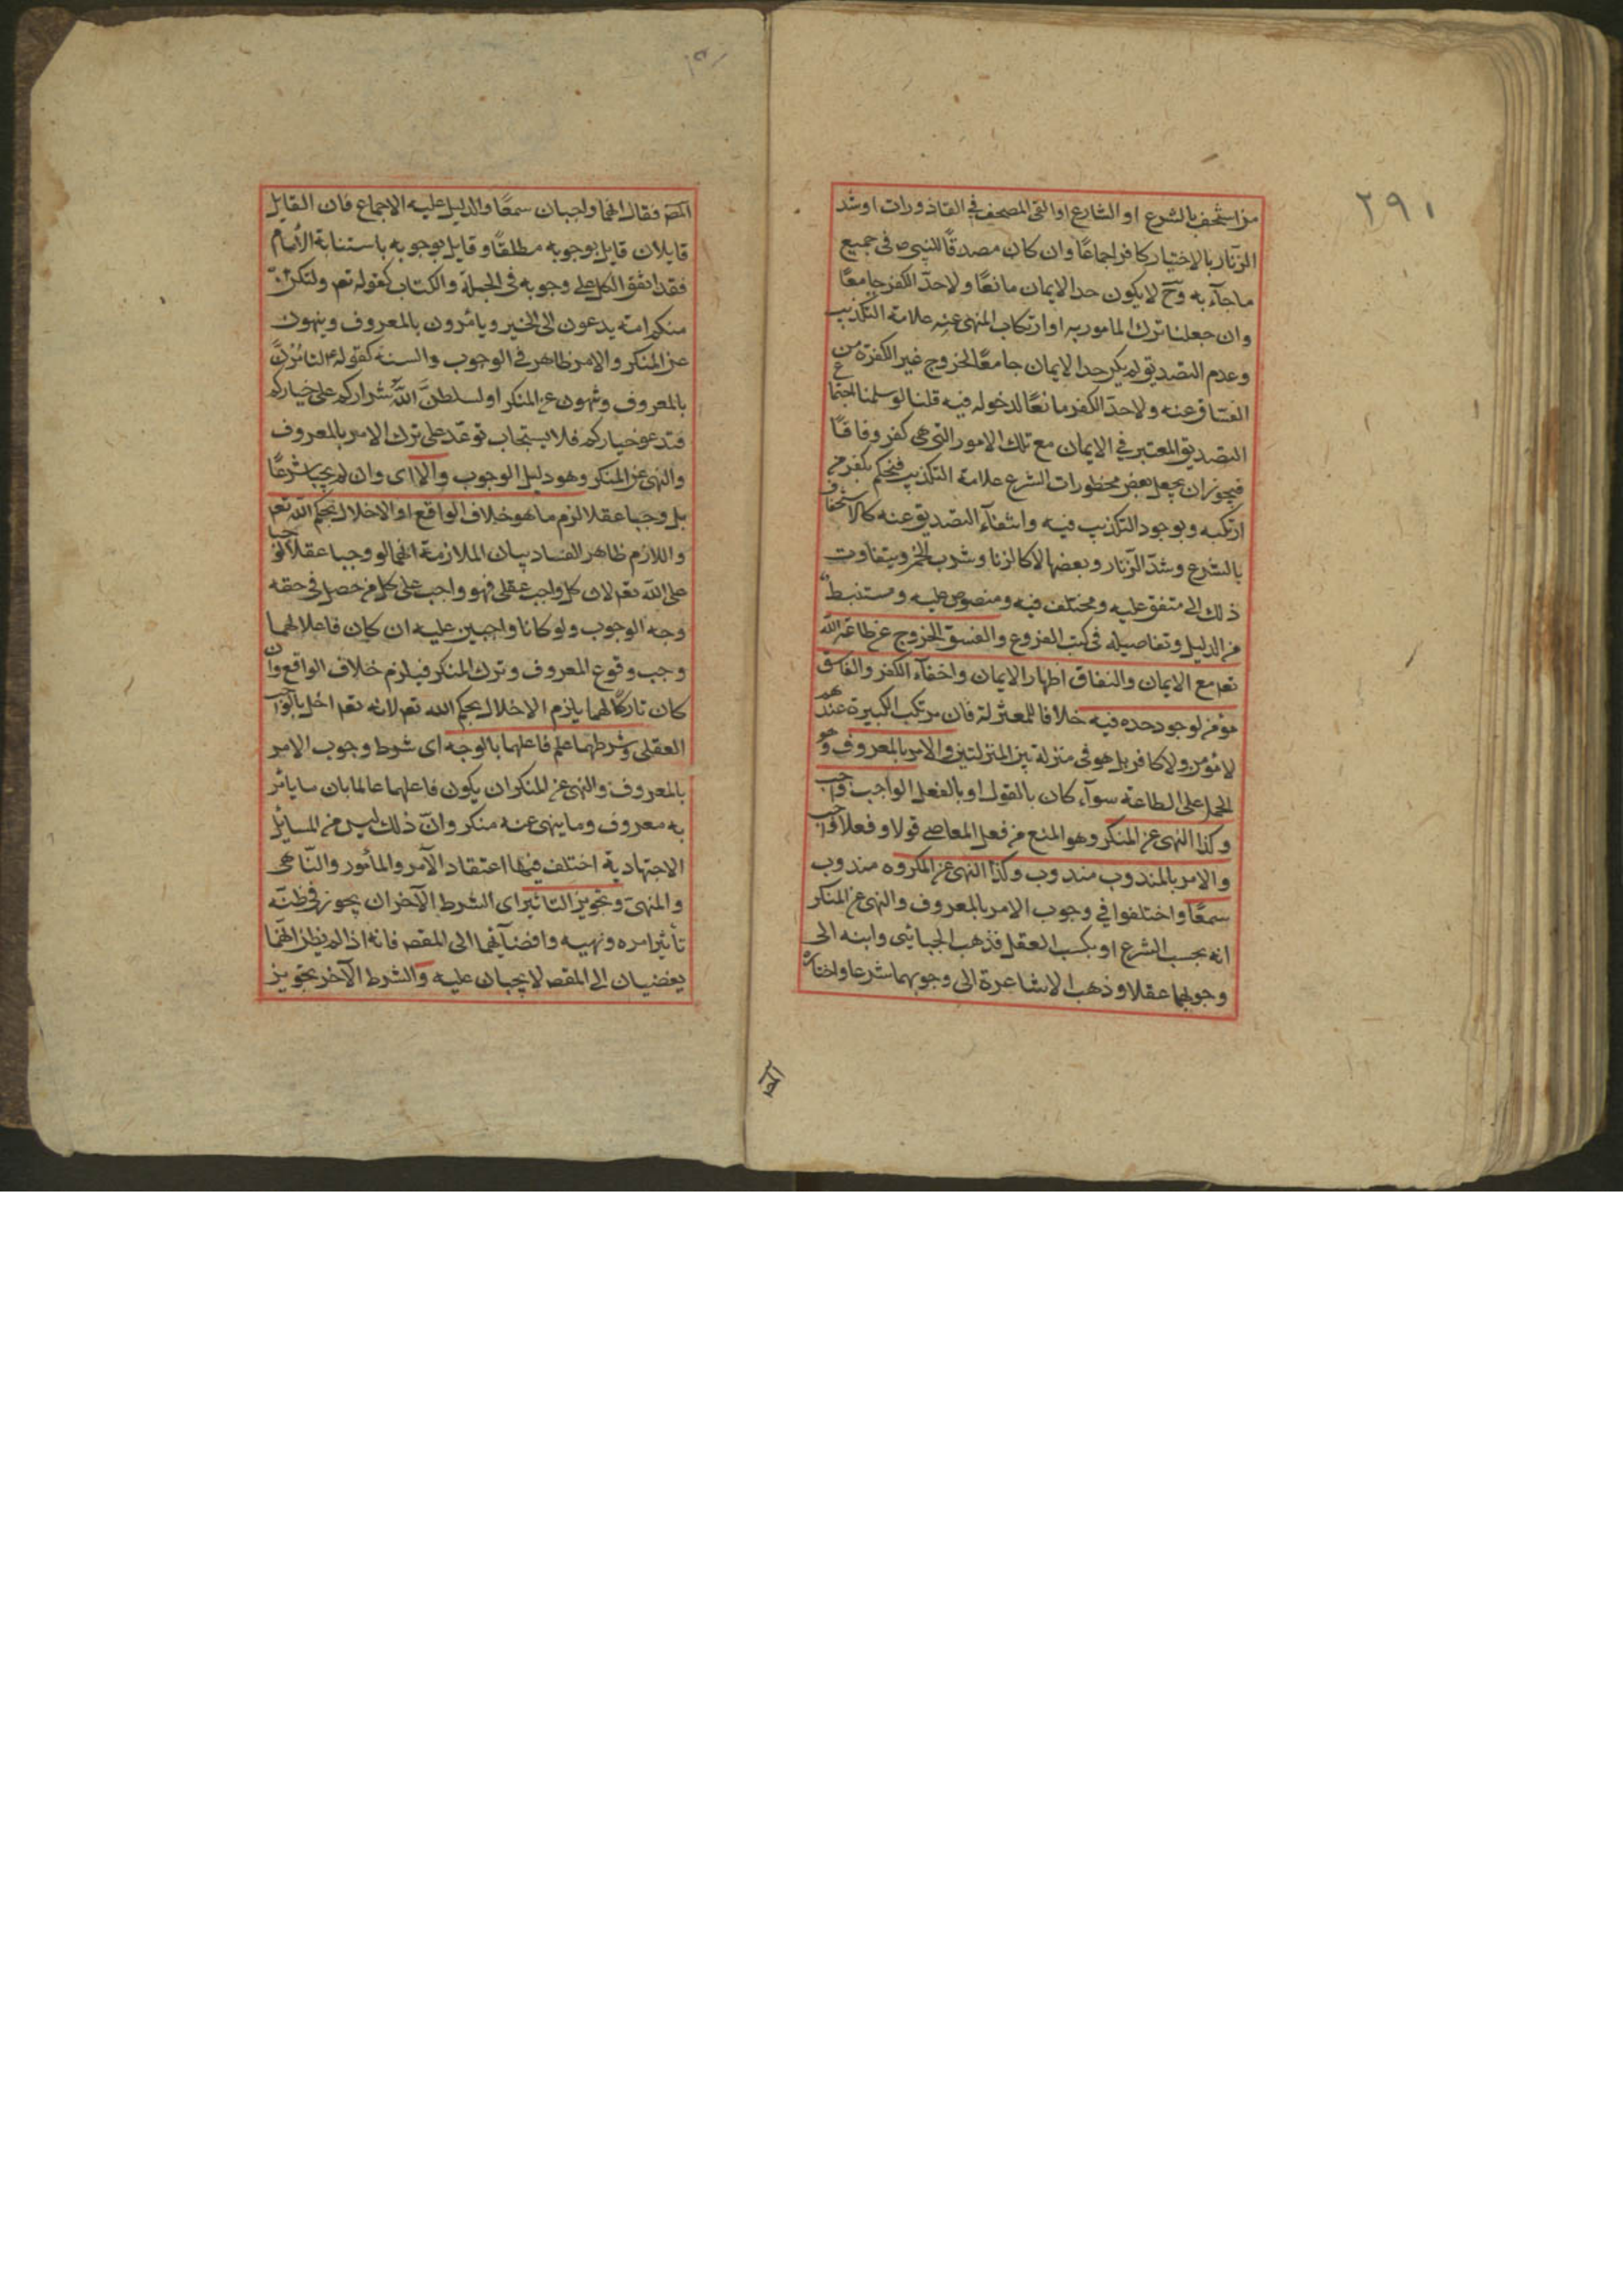 ٢٩١
من استخف بالشرع او الشارع او القى المصحف فى القاذورات او شد
الزنار بالاختيار كافر اجماعًا وان كان مصدقًا للنبى ص فى جميع
ما جآء به وح لا يكون حد الايمان مانعًا ولا حدّ الكفر جامعًا
وان جعلنا ترك المامور به او ارتكاب المنهى عنه علامة التكذيب
وعدم التصديق لم يكن حد الايمان جامعًا لخروج غير الكفرة من
الفساق عنه ولا حدّ الكفر مانعًا لدخوله فيه قلنا لو سلمنا اجتماع
التصديق المعتبر فى الايمان مع تلك الامور التى هى كفر وفاقًا
فيجوز ان يجعل بعض محظورات الشرع علامة التكذيب فنحكم بكفر من
ارتكبه وبوجود التكذيب فيه وانتفآء التصديق عنه كالاستخفاف
بالشرع وشدّ الزنار وبعضها لا كالزنا وشرب الخمر ويتفاوت
ذلك الى متفق عليه ومختلف فيه ومنصوص عليه ومستنبط
من الدليل وتفاصيله فى كتب الفروع والفسق الخروج عن طاعة الله
تعه مع الايمان والنفاق اظهار الايمان واخفآء الكفر والفاسق
مؤمن لوجود حده فيه خلافا للمعتزلة فان مرتكب الكبيرة عندهم
لا مؤمن ولا كافر بل هو فى منزلة بين المنزلتين والامر بالمعروف وهو
الحمل على الطاعة سوآء كان بالقول او بالفعل الواجب واجب
وكذا النهى عن المنكر وهو المنع من فعل المعاصى قولا وفعلا واجب
والامر بالمندوب مندوب وكذا النهى عن المكروه مندوب
سمعًا واختلفوا فى وجوب الامر بالمعروف والنهى عن المنكر
انه بحسب الشرع او بحسب العقل فذهب الجبائى وابنه الى
وجوبهما عقلا وذهب الاشاعرة الى وجوبهما شرعا واختاره
المص
المص فقال انهما واجبان سمعًا والدليل عليه الاجماع فان القايل
قايلان قايل بوجوبه مطلقًا وقايل بوجوبه باستنابة الامام
فقد اتفق الكل على وجوبه فى الجملة والكتاب كقوله تعه ولتكن
منكم امة يدعون الى الخير ويامرون بالمعروف وينهون
عن المنكر والامر ظاهر فى الوجوب والسنة كقوله ع لتامرنّ
بالمعروف وتنهون عن المنكر او ليسلطنّ الله شراركم على خياركم
فتدعو خياركم فلا يستجاب توعّد على ترك الامر بالمعروف
والنهى عن المنكر وهو دليل الوجوب والا اى وان لم يجبا شرعًا
بل وجبا عقلا لزم ما هو خلاف الواقع او الاخلال بحكم الله تعه
واللازم ظاهر الفساد بيان الملازمة انهما لو وجبا عقلا لوجبا
على الله تعه لان كل واجب عقلى فهو واجب على كل من حصل فى حقه
وجه الوجوب ولو كانا واجبين عليه ان كان فاعلا لهما
وجب وقوع المعروف وترك المنكر فيلزم خلاف الواقع وان
كان تاركًا لهما يلزم الاخلال بحكم الله تعه لانه تعه اخل بالواجب
العقلى وشرطهما علم فاعلهما بالوجه اى شرط وجوب الامر
بالمعروف والنهى عن المنكر ان يكون فاعلهما عالما بان ما يامر
به معروف وما ينهى عنه منكر وانّ ذلك ليس من المسايل
الاجتهادية اختلف فيها اعتقاد الآمر والمأمور والنّاهى
والمنهىّ وتجويز التاثير اى الشرط الآخر ان يجوز فى ظنّه
تأثير امره ونهيه وافضآئهما الى المقص فانه اذا لم يظن انهما
يفضيان الى المقص لا يجبان عليه والشرط الآخر تجويز